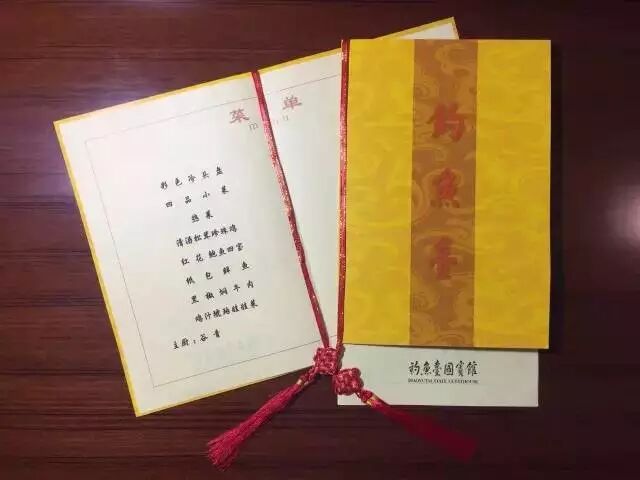 菜单
menu
彩色冷头盘
四品小菜
热菜
清酒松茸珍珠鸡
红花鲍鱼四宝
纸包鲜鱼
黑椒焖牛肉
鸡汁琥珀娃娃菜
主厨：谷青
钓鱼台
钓鱼臺國賓館
DIAOYUTAI STATE GUESTHOUSE